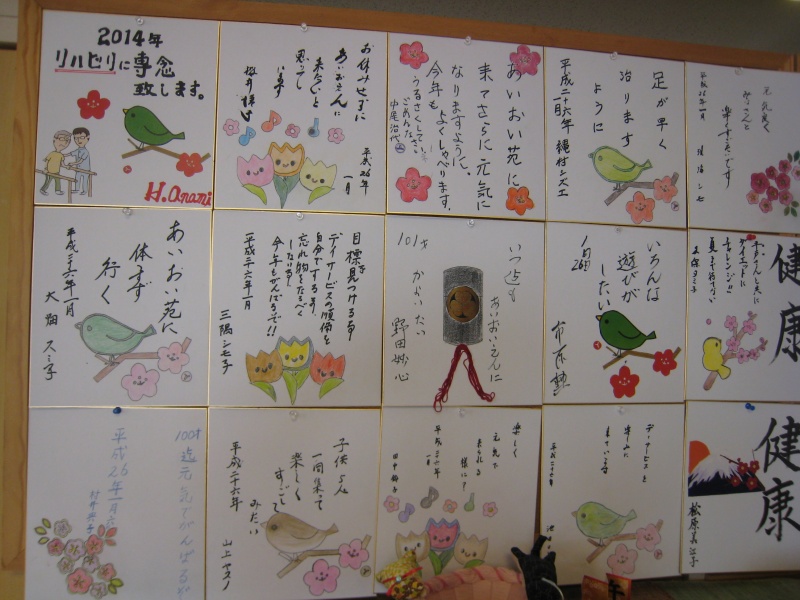 2014年
リハビリに専念
致します。
H.Onami
お休みせずに
あいおいさんに
来たいと
思って
います
桜井
平成26年
1月
あいおい苑に
来てさらに元気に
なりますように、
今年も
よくしゃべります。
うるさくって
ごめんなさい
中尾治代
足が早く
治ります
ように
平成二十六年
一月
穂村シズエ
元気良く
平成26年1月
あいおい苑に
休まず
行く
平成二六年一月
大畑スミ子
目標を見つける事
デイサービスの準備を
自分でする事
忘れ物をなるべく
しない事
今年もがんばるぞ!!
平成二十六年一月
三隅シモ子
いつ迄も
あいおいえんに
かよいたい
101才
野田妙心
いろんな
遊びが
したい
1月26日
ダイエットに
チャレンジ
健康
100才迄元気でがんばるぞ
平成26年1月
子供5人
一同集って
楽しく
すごして
みたい
平成二十六年
山上ヤスノ
楽しく
元気で
来られる
様に
平成二十六年
一月
田中
デーサービスを
楽しみに
平成二十六年
健康
松原美江子